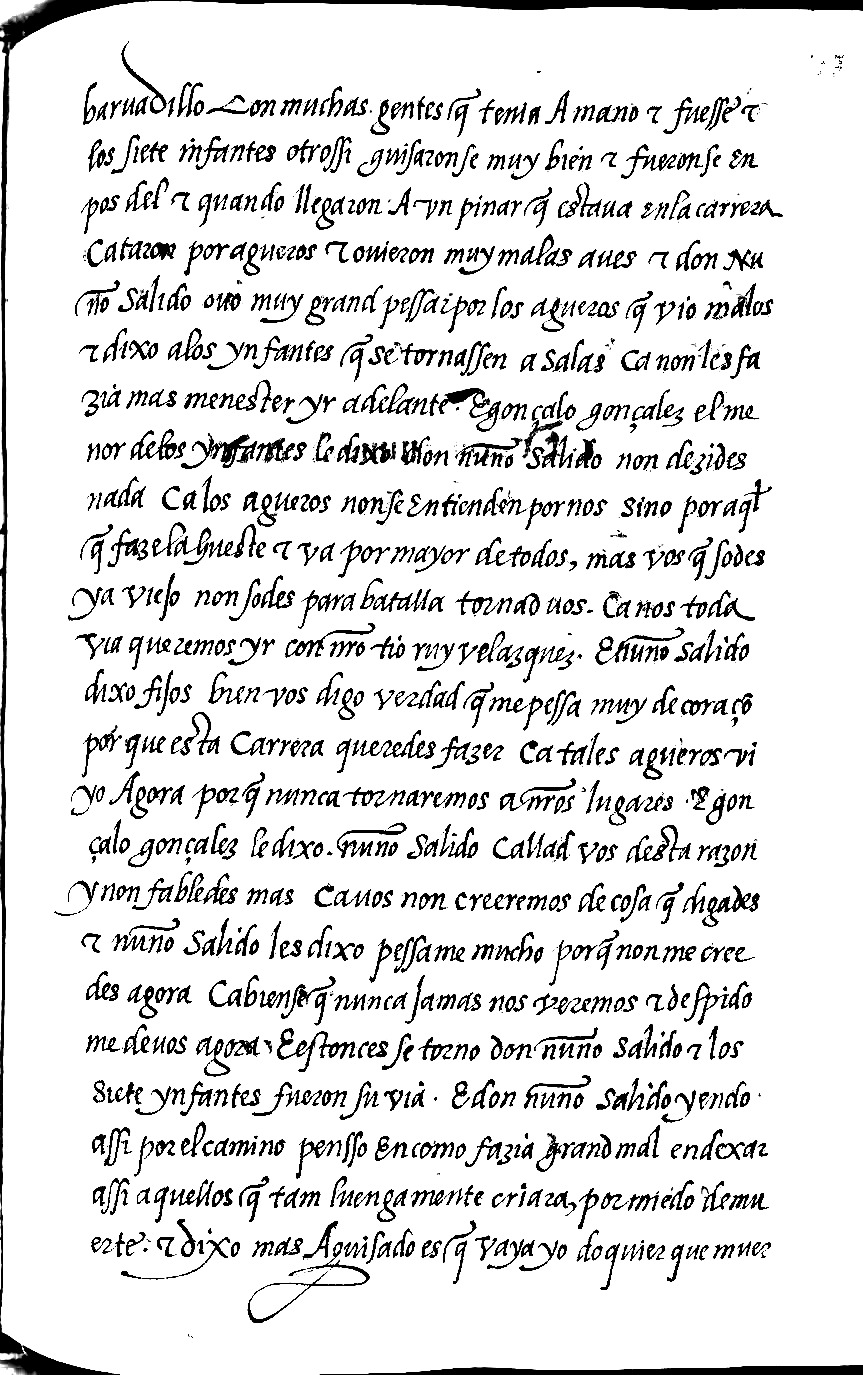 barvadillo Con muchas gentes q̃ tenia A mano ⁊ fuesse ⁊
los siete infantes otrossi guisaronse muy bien ⁊ fueronse En
pos del ⁊ quando llegaron A vn pinar q̃ estaua en la carrera
Cataron por agueros ⁊ ovieron muy malas aves ⁊ don Nu
ño Salido ovo muy grand pessar por los agueros q̃ vio malos
⁊ dixo a los ynfantes q̃ se tornassen a Salas Ca non les fa
zia mas menester yr adelante. E gonçalo gonçalez el me
nor de los ynfantes le dixo don nuño Salido non dezides
nada Ca los agueros non se Entienden por nos Sino por aql̃
q̃ faze la hueste ⁊ va por mayor de todos, mas vos q̃ sodes
ya viejo non sodes para batalla tornad uos. Ca nos toda
via queremos yr con nr̃o tio ruy velazquez. E nuño Salido
dixo fijos bien vos digo verdad q̃ me pessa muy de coraçõ
por que esta Carrera queredes fazer Ca tales agueros vi
yo Agora por q̃ nunca tornaremos a nr̃os lugares E gon
çalo gonçalez le dixo. nuño Salido Callad vos desta razon
y non fabledes mas Ca uos non creeremos de cosa q̃ digades
⁊ nuño Salido les dixo pessame mucho porq̃ non me cree
des agora Ca bien se q̃ nunca jamas nos veremos ⁊ despido
me de uos agora, E estonces se torno don nuño Salido ⁊ los
Siete ynfantes fueron su via. E don nuño Salido yendo
assi por el camino pensso En como fazia grand mal en dexar
assi a quellos q̃ tam luengamente criara, por miedo de mu
erte. ⁊ dixo mas Aguisado es q̃ vaya yo do quier que muer